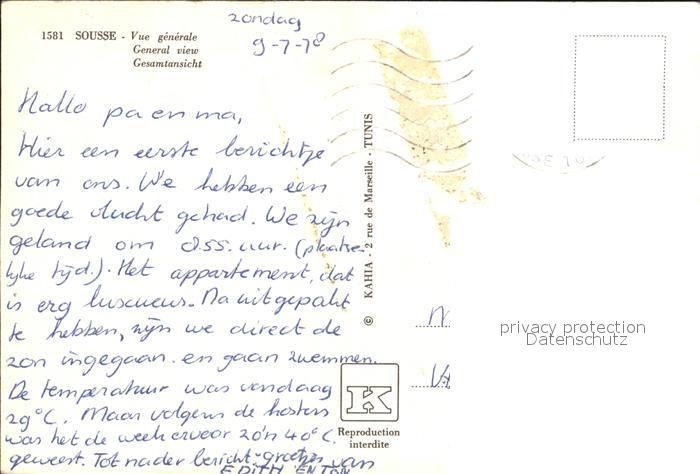 zondag
9-7-78
1581 SOUSSE - Vue générale
General view
Gesamtansicht
Hallo pa en ma,
Hier een eerste berichtje
van ons. We hebben een
goede vlucht gehad. We zijn
geland om 8.55. uur. (plaatse-
lijke tijd.). Het appartement, dat
is erg luxueus. Na uitgepakt
te hebben, zijn we direct de
zon ingegaan. en gaan zwemmen.
De temperatuur was vandaag
29°C. Maar volgens de hostess
was het de week ervoor zo'n 40°C.
geweest. Tot nader bericht. groetjes van
EDITH EN TON
© KAHIA - 2 rue de Marseille - TUNIS
K
Reproduction
interdite
privacy protection
Datenschutz